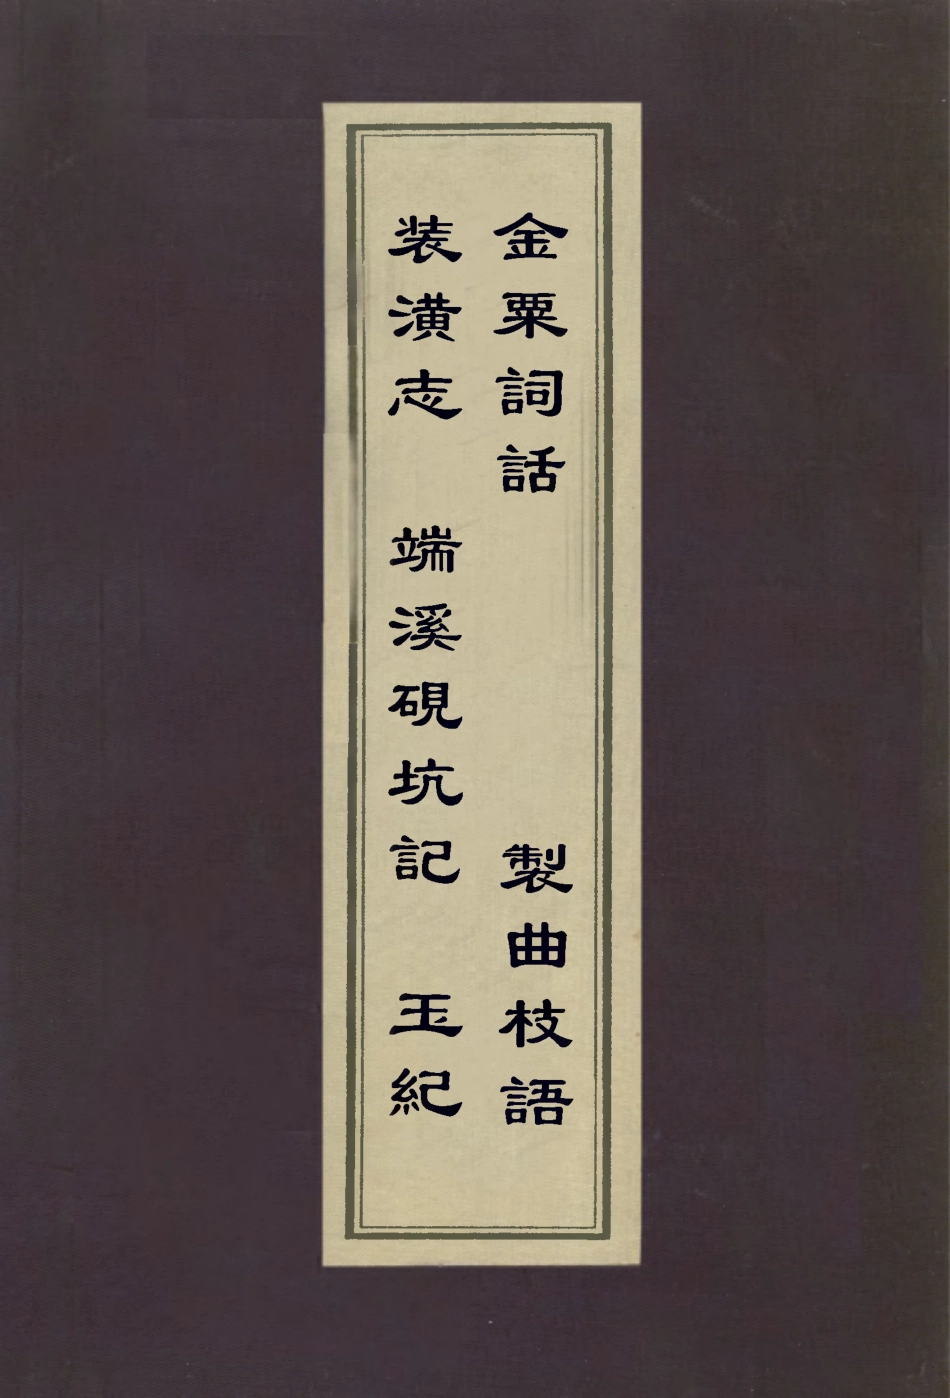 金粟詞話 製曲枝語
装潢志 端溪硯坑記 玉紀